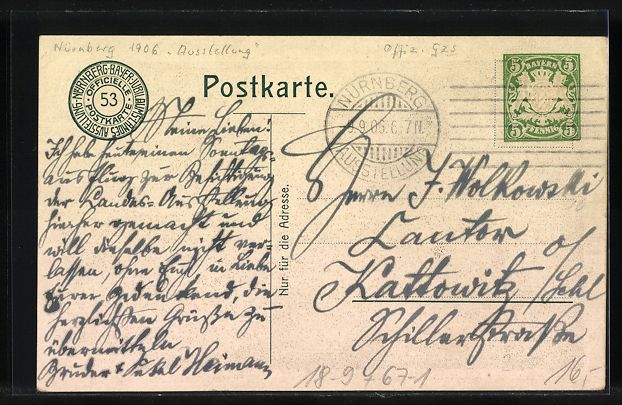 Nürnberg 1906 "Ausstellung"
Offiz. Gzs
NÜRNBERG · BAYER. JUBIL. LANDES AUSSTELLUNG
OFFICIELLE POSTKARTE
53
Postkarte.
NÜRNBERG
9.06. 6-7N.
AUSSTELLUNG
BAYERN
5 5
5 PFENNIG 5
Nur für die Adresse.
Meine Lieben!
Ich habe heute einen Sonntags-
ausflug zur Besichtigung
der Landes-Ausstellung
hierher gemacht und
will dieselbe nicht ver-
lassen, ohne Euch, in Liebe
Eurer gedenkend, die
herzlichsten Grüße zu
übermitteln
Bruder Heimann
Herrn J. Wolkowski
Cantor
Kattowitz o/Schl
Schillerstraße
18-9 + 67-1
16,-